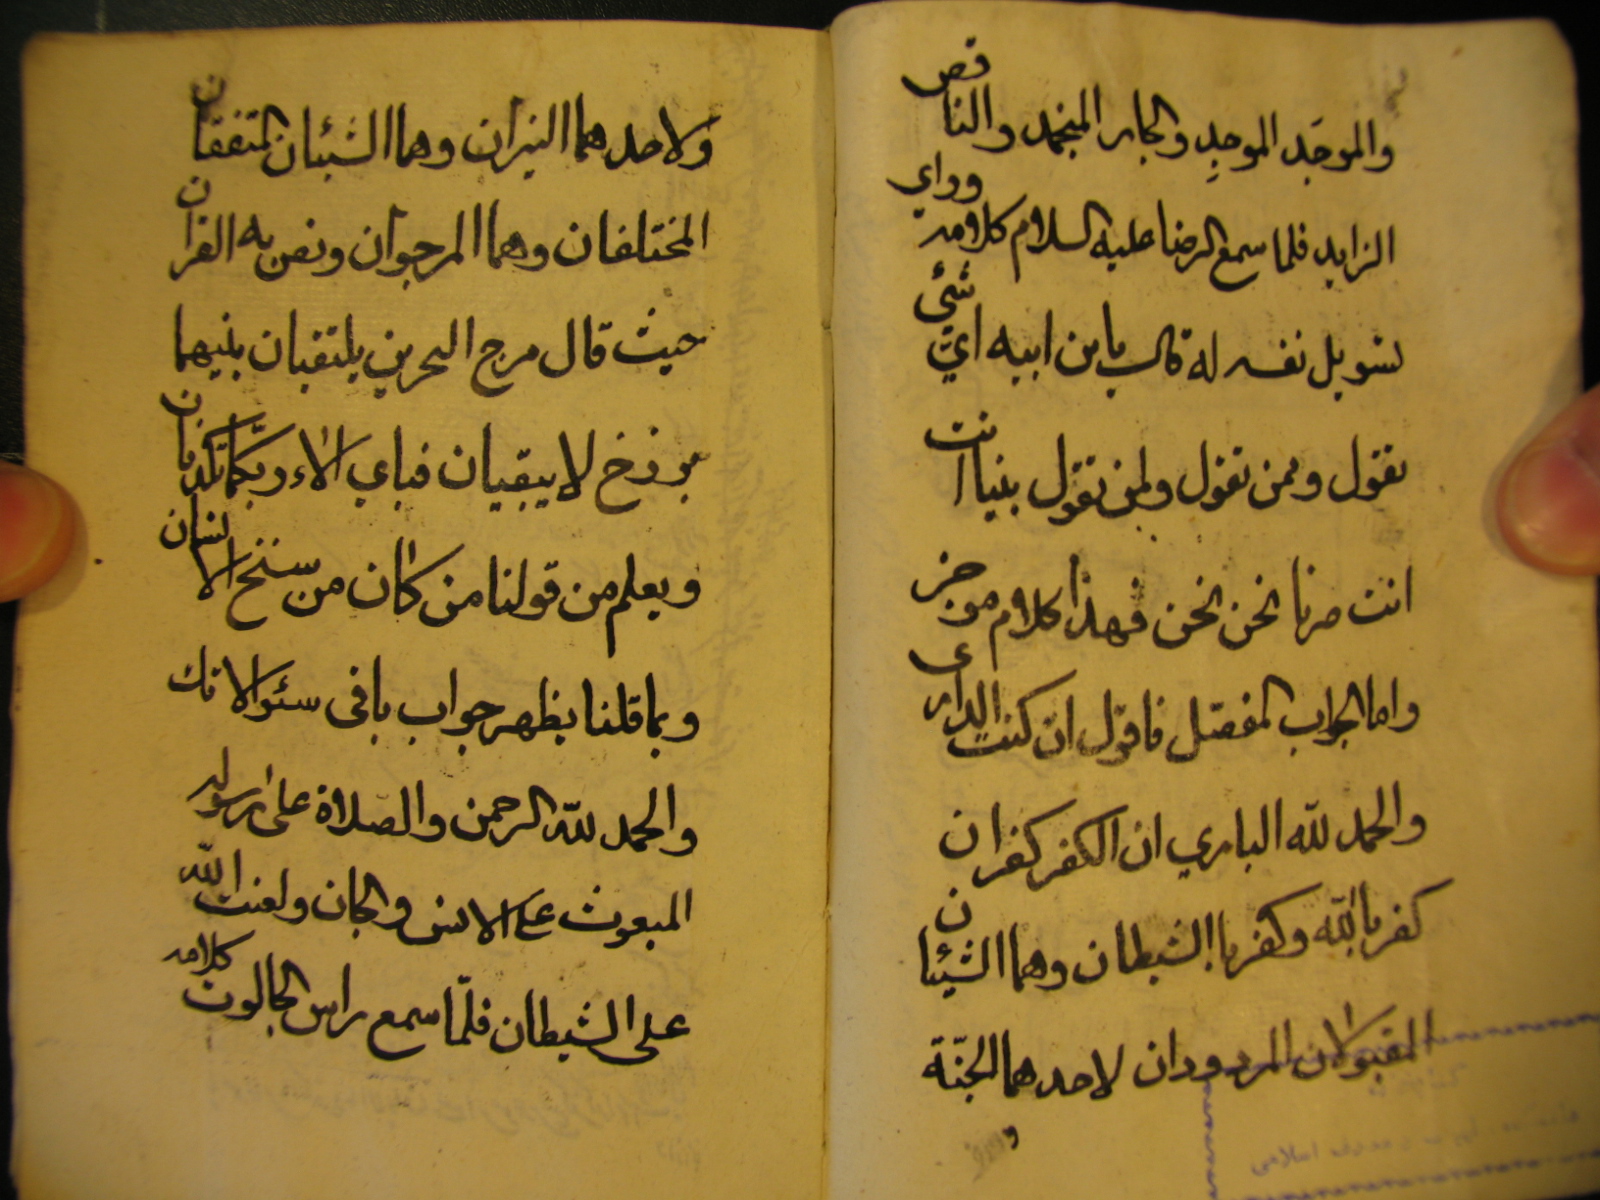 والموجَد الموجِد والجار المنجمد والناقص
الزايد فلما سمع الرضا عليه السلام كلامه وراي
تسويل نفسه له قال يابن ابيه اي شئي
تقول وممن تقول ولمن تقول بنيا انت
انت صرنا نحن نحن فهذا كلام موجز
واما الجواب المفصل فاقول ان كنت الداري
والحمد لله الباري ان الكفر كفران
كفر بالله وكفر بالشيطان وهما الشيئان
المقبولان المردودان لاحدهما الجنّة
و
ولاحدهما النيران وهما الشيئان المتفقان
المختلفان وهما المرجوان ونص به القران
حيث قال مرج البحرين يلتقيان بينهما
برزخ لا يبقيان فباي الاء ربّكما تكذبان
ويعلم من قولنا من كان من سنخ الانسان
وبما قلنا يظهر جواب باقي سئوالاتك
والحمد لله الرحمن والصلاة على رسوله
المبعوث على الانس والجان ولعنت الله
على الشيطان فلمّا سمع راس الجالوت كلامه
معارف اسلامی